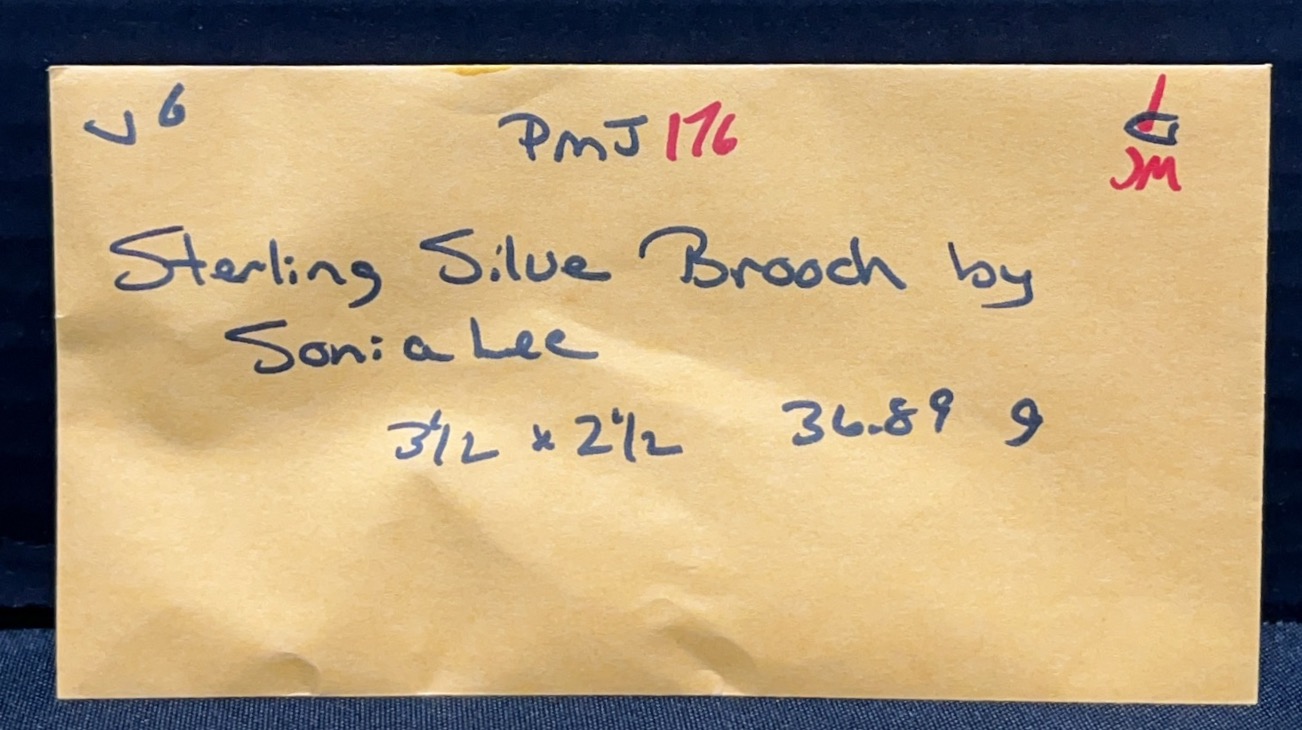 J6 PMJ 176
JM
Sterling Silve Brooch by
Sonia Lee
3 1/2 x 2 1/2 36.89 g